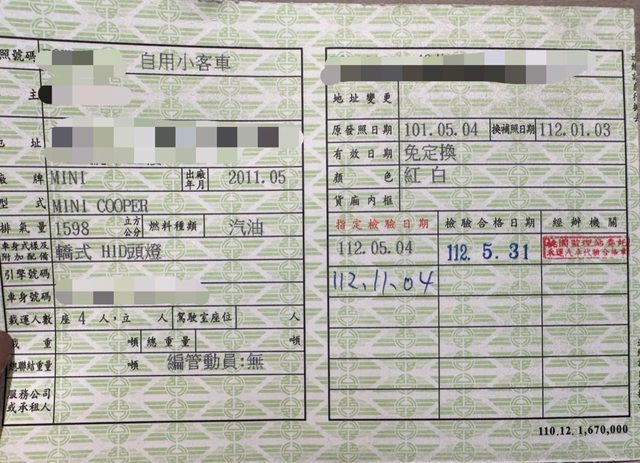 照號碼 自用小客車
主
地 址
廠 牌 MINI 出廠年月 2011.05
型 式 MINI COOPER
排氣量 1598 立方公分 燃料種類 汽油
車身式樣及附加配備 轎式 HID頭燈
引擎號碼
車身號碼
載運人數 座 4 人,立 人 駕駛室座位 人
載 重 噸 總 重 量 噸
總聯結重量 噸 編管動員:無
服務公司或承租人
地址變更
原發照日期 101.05.04 換補照日期 112.01.03
有效日期 免定換
顏 色 紅 白
貨廂內框
指定檢驗日期 檢驗合格日期 經辦機關
112.05.04 112. 5. 31
112.11.04
110.12. 1,670,000